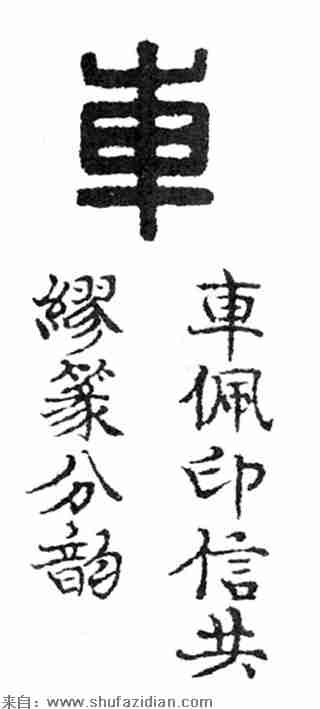 車
車佩印信共
繆篆分韵
来自：www.shufazidian.com